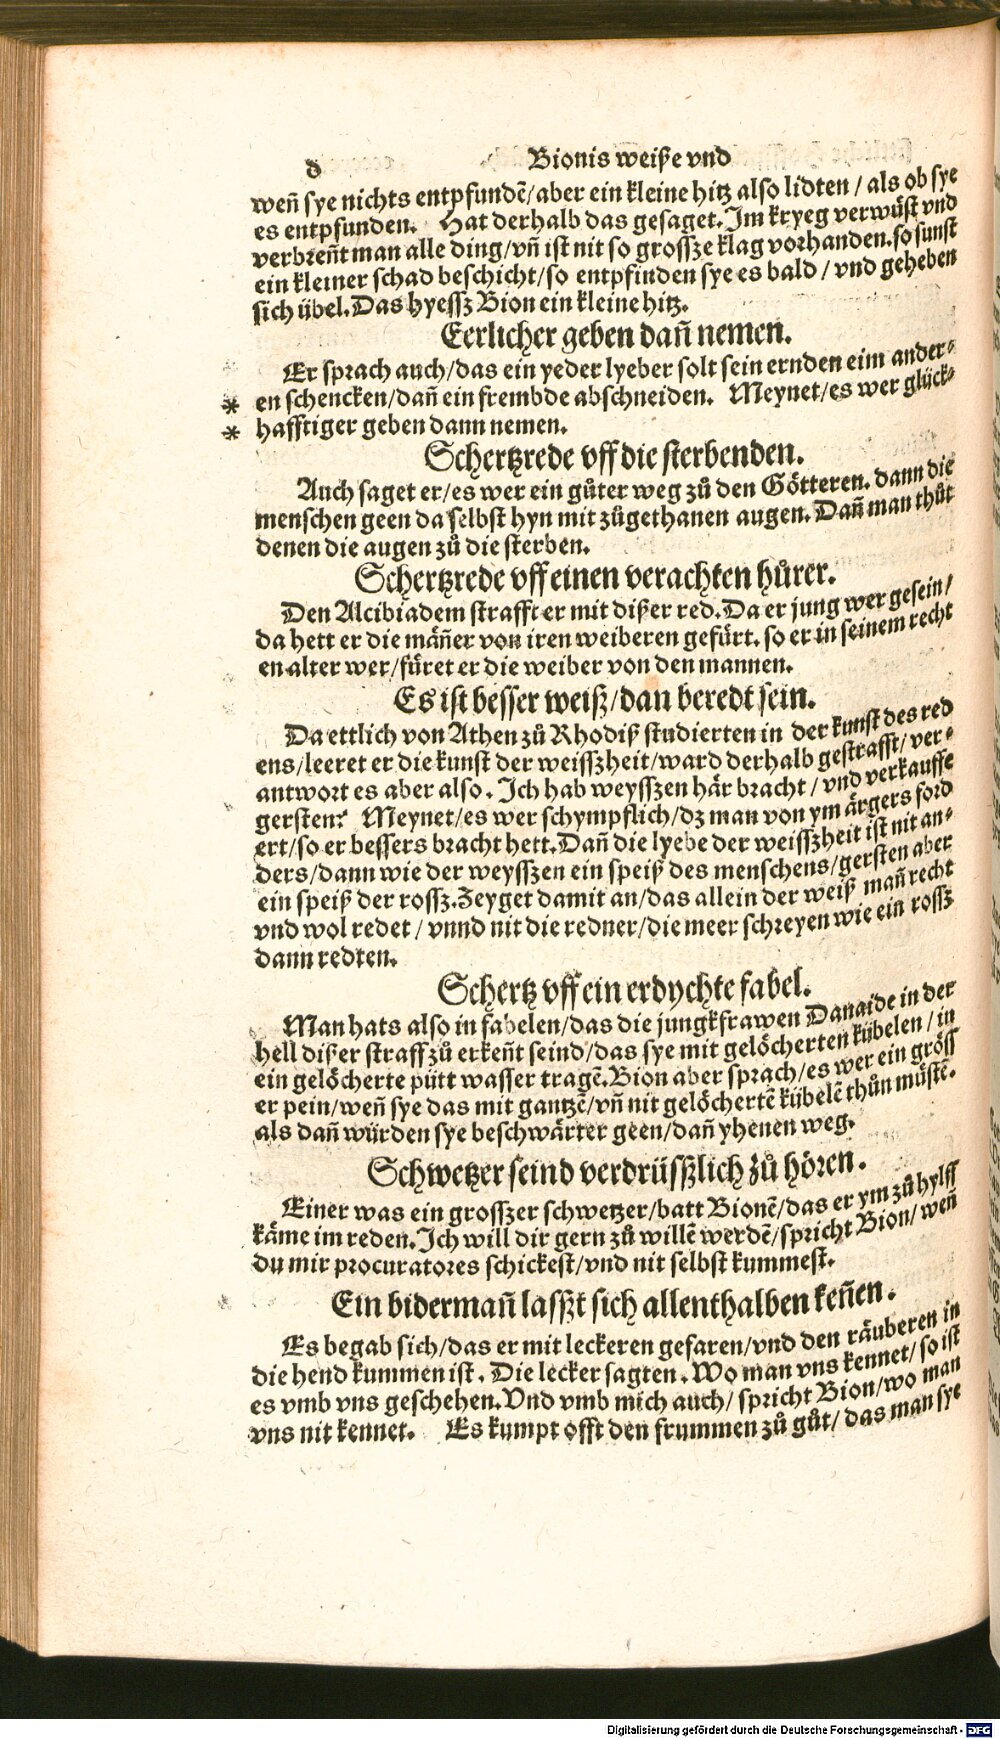 d
Bionis weiße vnd
weñ sye nichts entpfundẽ/aber ein kleine hitz also lidten / als ob sye
es entpfunden. Hat derhalb das gesaget. Im kryeg verwůst vnd
verbreñt man alle ding/vñ ist nit so grossze klag vorhanden. so sunst
ein kleiner schad beschicht/so entpfinden sye es bald / vnd geheben
sich übel. Das hyessz Bion ein kleine hitz.
Eerlicher geben dañ nemen.
Er sprach auch/das ein yeder lyeber solt sein ernden eim ander⸗
* en schencken/dañ ein frembde abschneiden. Meynet/es wer glück⸗
* hafftiger geben dann nemen.
Schertzrede vff die sterbenden.
Auch saget er/es wer ein gůter weg zů den Götteren. dann die
menschen geen da selbst hyn mit zůgethanen augen. Dañ man thůt
denen die augen zů die sterben.
Schertzrede vff einen verachten hůrer.
Den Alcibiadem strafft er mit dißer red. Da er jung wer gesein/
da hett er die mäñer von iren weiberen gefürt. so er in seinem recht
en alter wer/füret er die weiber von den mannen.
Es ist besser weiß/dan beredt sein.
Da ettlich von Athen zů Rhodiß studierten in der kunst des red
ens/leeret er die kunst der weisszheit/ward derhalb gestrafft/ ver⸗
antwort es aber also. Ich hab weysszen här bracht / vnd verkauffe
gersten? Meynet/es wer schympflich/dz man von ym ärgers ford
ert/so er bessers bracht hett. Dañ die lyebe der weisszheit ist nit an⸗
ders/dann wie der weysszen ein speiß des menschens/gersten aber
ein speiß der rossz. Zeyget damit an/das allein der weiß mañ recht
vnd wol redet / vnnd nit die redner/die meer schreyen wie ein rossz
dann redten.
Schertz vff ein erdychte fabel.
Man hats also in fabelen/das die jungkfrawen Danaide in der
hell dißer straff zů erkeñt seind/das sye mit gelöcherten kübelen / in
ein gelöcherte pütt wasser tragẽ. Bion aber sprach/es wer ein gröss
er pein/weñ sye das mit gantzẽ/vñ nit gelöchertẽ kübelẽ thůn müstẽ.
als dañ würden sye beschwärter geen/dañ yhenen weg.
Schwetzer seind verdrüsszlich zů hören.
Einer was ein grosszer schwetzer/batt Bionẽ/das er ym zů hylff
käme im reden. Ich will dir gern zů willẽ werdẽ/spricht Bion/ weñ
du mir procuratores schickest/vnd nit selbst kummest.
Ein bidermañ lasszt sich allenthalben keñen.
Es begab sich/das er mit leckeren gefaren/vnd den räuberen in
die hend kummen ist. Die lecker sagten. Wo man vns kennet/ so ist
es vmb vns geschehen. Vnd vmb mich auch/ spricht Bion/wo man
vns nit kennet. Es kumpt offt den frummen zů gůt/ das man sye
Digitalisierung gefördert durch die Deutsche Forschungsgemeinschaft - DFG